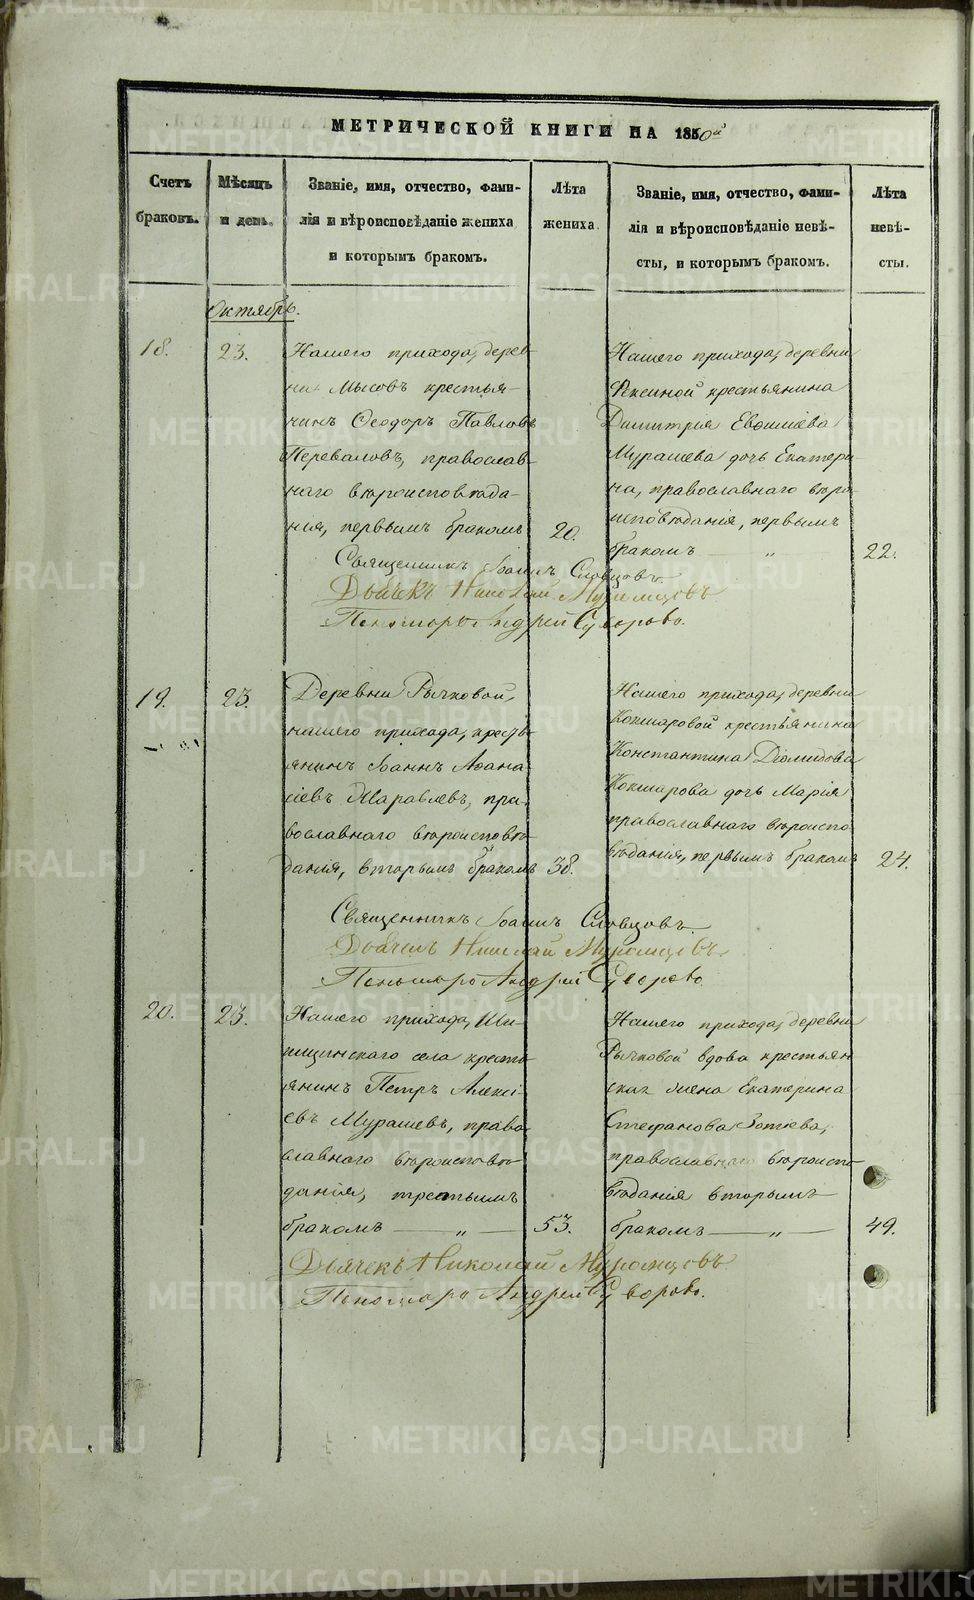 МЕТРИЧЕСКОЙ КНИГИ НА 1850й
Счетъ браковъ.
Мѣсяцъ и день.
Званіе, имя, отчество, фами-
лія и вѣроисповѣданіе жениха
и которымъ бракомъ.
Лѣта
жениха
Званіе, имя, отчество, фами-
лія и вѣроисповѣданіе невѣ-
сты, и которымъ бракомъ.
Лѣта
невѣ-
сты.
Октябрь.
18.
23.
Нашего прихода, дерев-
ни Мысовъ крестья-
нинъ Ѳеодоръ Павловъ
Переваловъ, православ-
наго вѣроисповѣда-
нія, первымъ бракомъ
20.
Нашего прихода, деревни
крестьянина
Димитрія Евѳиміева
Мурашева дочь Екатери-
на, православнаго вѣро-
исповѣданія, первымъ
бракомъ — „
22.
Священникъ Іоаннъ Словцовъ.
Дьячекъ Николай Муромцовъ
Пономарь Андрей Суворовъ.
19.
23.
Деревни Рычковой,
нашего прихода, кресть-
янинъ Іоаннъ Аѳана-
сіевъ Жаравлевъ, пра-
вославнаго вѣроисповѣ-
данія, вторымъ бракомъ
38.
Нашего прихода, деревни
Кокшаровой крестьянина
Константина Діомидова
Кокшарова дочь Марія
православнаго вѣроиспо-
вѣданія, первымъ бракомъ
24.
Священникъ Іоаннъ Словцовъ.
Дьячекъ Николай Муромцовъ
Пономарь Андрей Суворовъ.
20.
23.
Нашего прихода, Ши-
пицинскаго села кресть-
янинъ Петръ Алексі-
евъ Мурашевъ, право-
славнаго вѣроисповѣ-
данія, третьимъ
бракомъ — „ —
53.
Нашего прихода, деревни
Рычковой вдова крестьян-
ская жена Екатерина
Стефанова Зотѣева,
православнаго вѣроиспо-
вѣданія вторымъ
бракомъ — „ —
49.
Дьячекъ Николай Муромцовъ
Пономарь Андрей Суворовъ.
METRIKI.GASO-URAL.RU